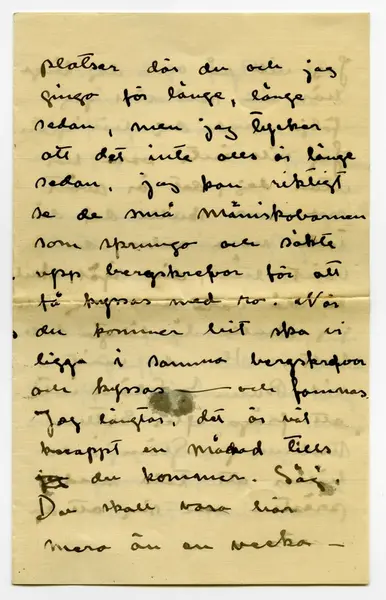 platser där du och jag
gingo för länge, länge
sedan, men jag tycker
att det inte alls är länge
sedan. jag kan riktigt
se de små människobarnen
som sprungo och sökte
upp bergskrefvor för att
få kyssas med ro. När
du kommer hit ska vi
ligga i samma bergskrefvor
och kyssas — och famnas.
Jag längtar, det är väl
knappt en månad tills
du kommer. Säg.
Du skall vara här
mera än en vecka —